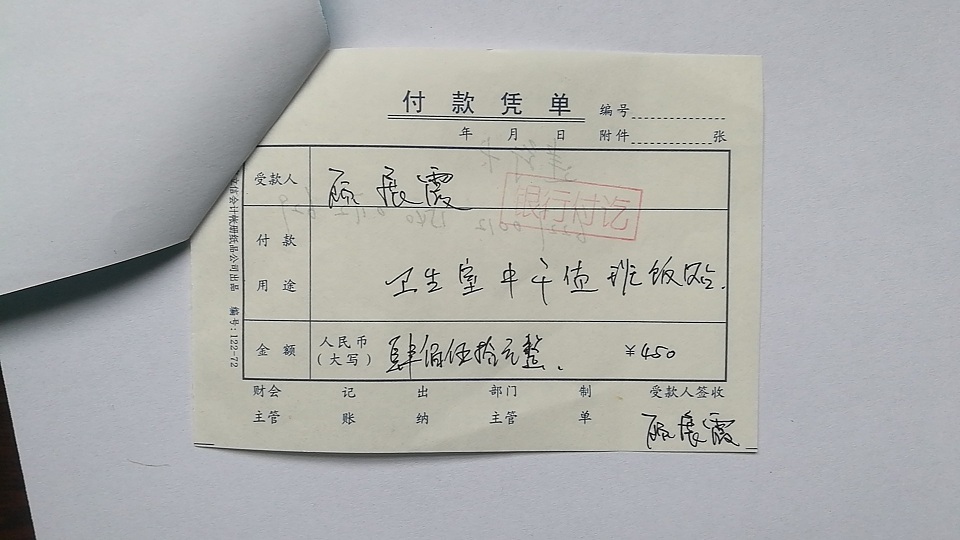 付款凭单
编号
年 月 日
附件 张
受款人 顾展霞
银行付讫
付款用途 卫生室中午值班饭贴.
金额 人民币(大写) 肆佰伍拾元整. ¥450
财会主管 记账 出纳 部门主管 制单 受款人签收
顾展霞
会计帐册纸品公司出品 编号:122-72